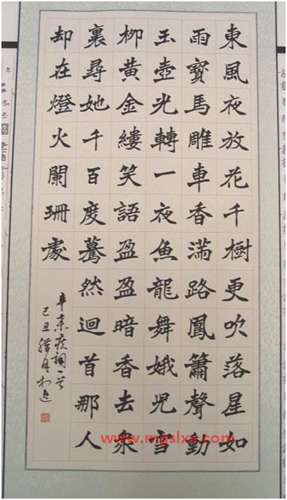 東風夜放花千樹更吹落星如
雨寶馬雕車香滿路鳳簫聲動
玉壺光轉一夜魚龍舞娥兒雪
柳黃金縷笑語盈盈暗香去衆
裏尋她千百度驀然迴首那人
却在燈火闌珊處
辛棄疾詞一首
己丑